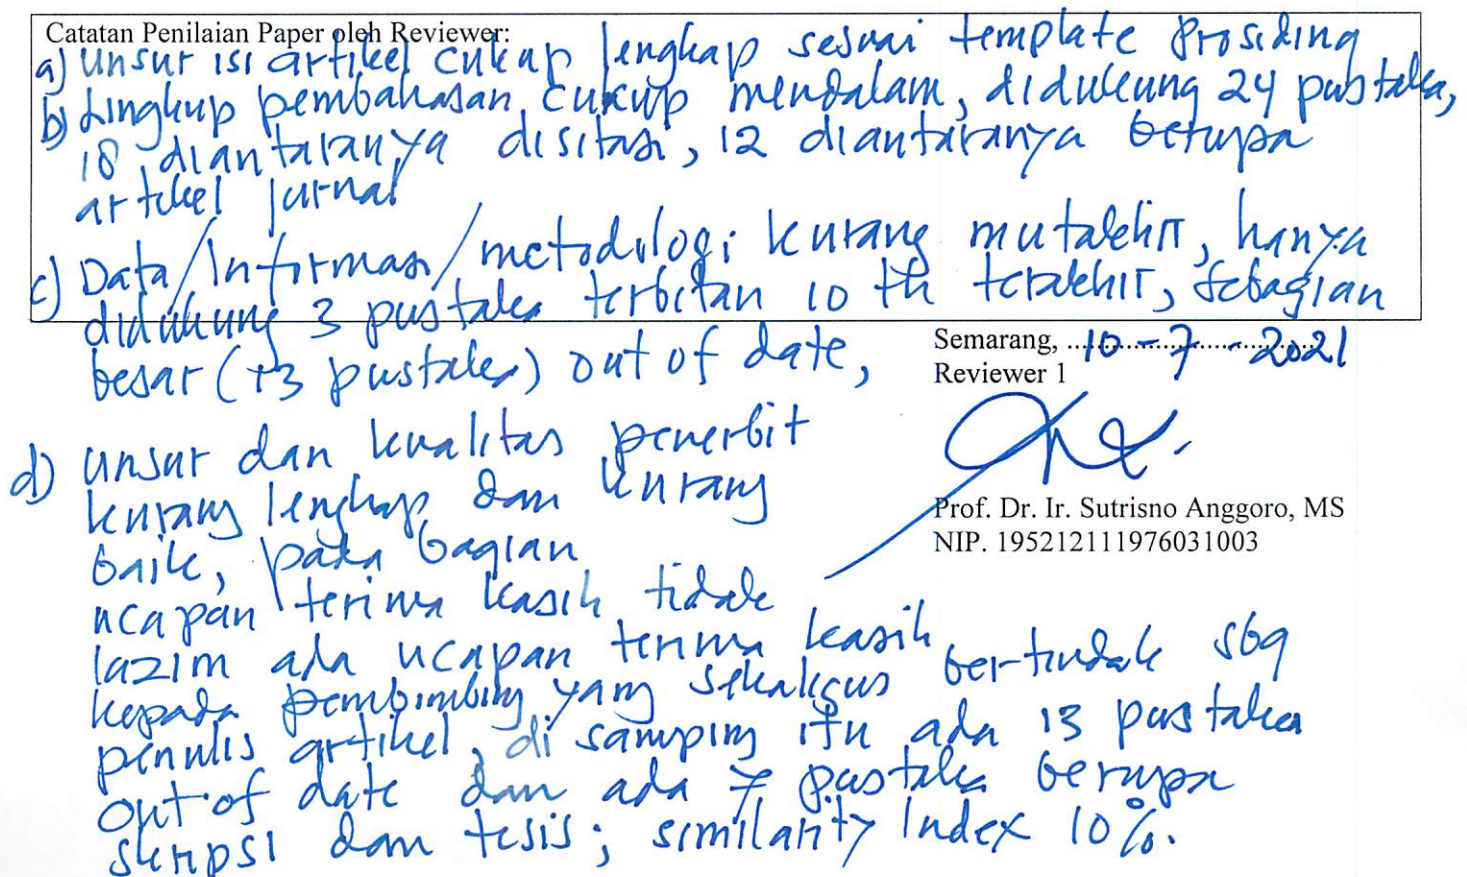 Catatan Penilaian Paper oleh Reviewer:
a) Unsur isi artikel cukup lengkap sesuai template Prosiding
b) Lingkup pembahasan cukup mendalam, didukung 24 pustaka,
18 diantaranya disitasi, 12 diantaranya berupa
artikel jurnal
c) Data/Informasi/metodologi kurang mutakhir, hanya
didukung 3 pustaka terbitan 10 th terakhir, sebagian
besar (13 pustaka) out of date,
Semarang, 10-7-2021
Reviewer 1
d) unsur dan kualitas penerbit
kurang lengkap dan kurang
baik, pada bagian
ucapan terima kasih tidak
lazim ada ucapan terima kasih
kepada pembimbing yang sekaligus bertindak sbg
penulis artikel, di samping itu ada 13 pustaka
out of date dan ada 7 pustaka berupa
skripsi dan tesis; similarity Index 10%.
Prof. Dr. Ir. Sutrisno Anggoro, MS
NIP. 195212111976031003